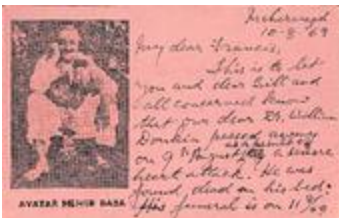 Meherazad
10-8-69
My dear Francis,
This is to let
you and dear Bill and
all concerned know
that our dear Dr. William
Donkin passed away
on 9th August
severe
heart attack. He was
found dead on his bed.
His funeral is on 11
AVATAR MEHER BABA